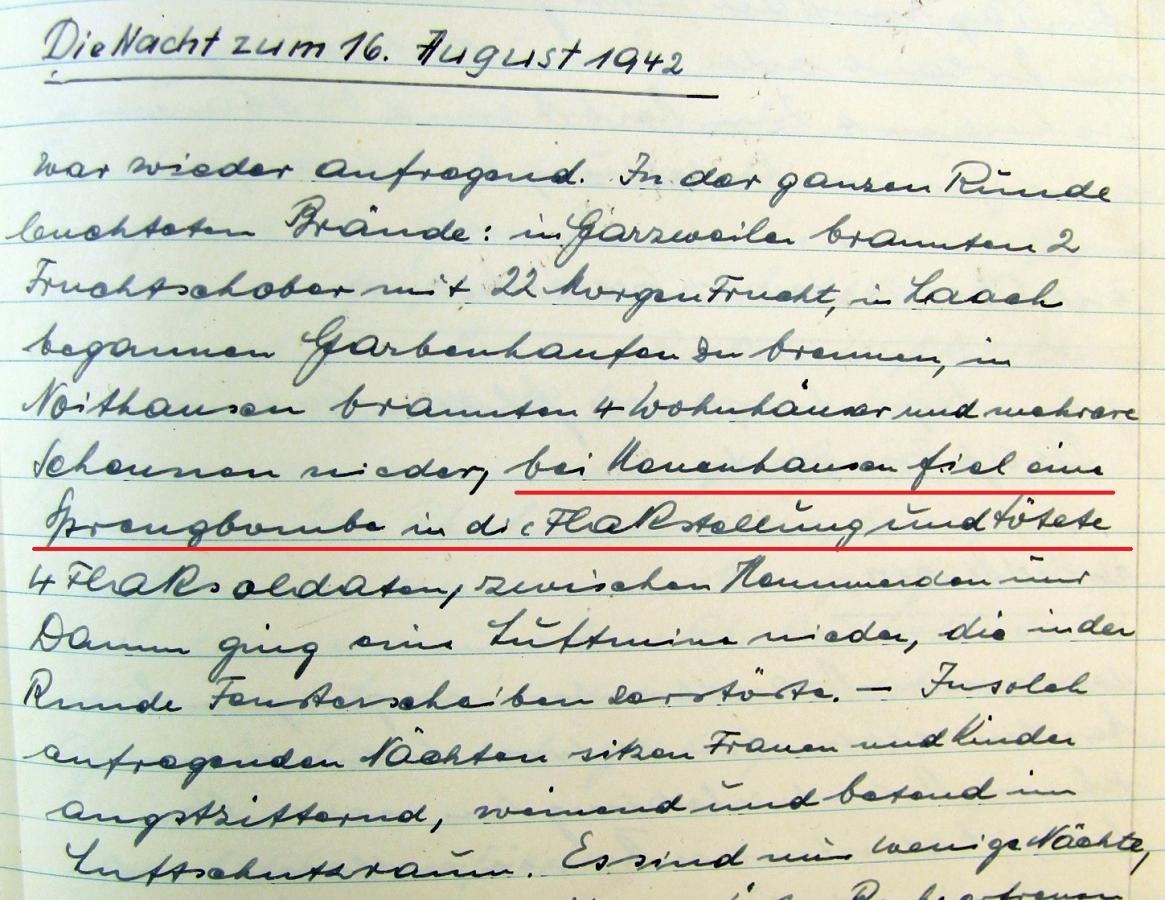 Die Nacht zum 16. August 1942
war wieder aufregend. In der ganzen Runde
leuchteten Brände: in Garzweiler brannten 2
Fruchtschober mit 22 Morgen Frucht, in Laach
begannen Garbenhaufen zu brennen, in
Noithausen brannten 4 Wohnhäuser und mehrere
Scheunen nieder, bei Neuenhausen fiel eine
Sprengbombe in die Flakstellung und tötete
4 Flaksoldaten, zwischen Hemmerden und
Damm ging eine Luftmine nieder, die in der
Runde Fensterscheiben zerstörte. – In solch
aufregenden Nächten sitzen Frauen und Kinder
angstzitternd, weinend und betend im
Luftschutzraum. Es sind nur wenige Nächte,